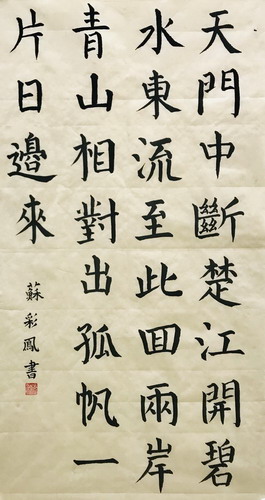 天門中斷楚江開碧
水東流至此回兩岸
青山相對出孤帆一
片日邊來
蘇彩鳳書